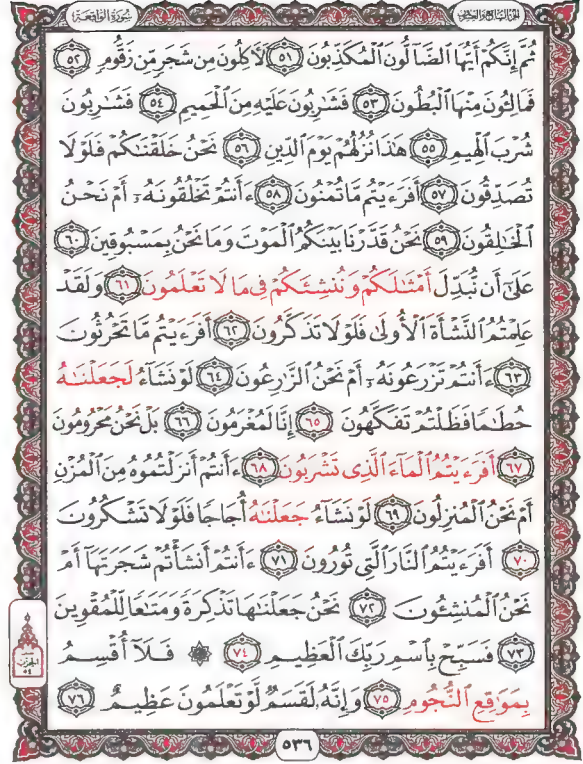 الجزء السابع والعشرون
سُورَةُ الوَاقِعَة
ثُمَّ إِنَّكُمْ أَيُّهَا ٱلضَّآلُّونَ ٱلْمُكَذِّبُونَ ٥١ لَأٓكِلُونَ مِن شَجَرٍ مِّن زَقُّومٍ ٥٢
فَمَالِـُٔونَ مِنْهَا ٱلْبُطُونَ ٥٣ فَشَـٰرِبُونَ عَلَيْهِ مِنَ ٱلْحَمِيمِ ٥٤ فَشَـٰرِبُونَ
شُرْبَ ٱلْهِيمِ ٥٥ هَـٰذَا نُزُلُهُمْ يَوْمَ ٱلدِّينِ ٥٦ نَحْنُ خَلَقْنَـٰكُمْ فَلَوْلَا
تُصَدِّقُونَ ٥٧ أَفَرَءَيْتُم مَّا تُمْنُونَ ٥٨ ءَأَنتُمْ تَخْلُقُونَهُۥٓ أَمْ نَحْنُ
ٱلْخَـٰلِقُونَ ٥٩ نَحْنُ قَدَّرْنَا بَيْنَكُمُ ٱلْمَوْتَ وَمَا نَحْنُ بِمَسْبُوقِينَ ٦٠
عَلَىٰٓ أَن نُّبَدِّلَ أَمْثَـٰلَكُمْ وَنُنشِئَكُمْ فِى مَا لَا تَعْلَمُونَ ٦١ وَلَقَدْ
عَلِمْتُمُ ٱلنَّشْأَةَ ٱلْأُولَىٰ فَلَوْلَا تَذَكَّرُونَ ٦٢ أَفَرَءَيْتُم مَّا تَحْرُثُونَ
٦٣ ءَأَنتُمْ تَزْرَعُونَهُۥٓ أَمْ نَحْنُ ٱلزَّٰرِعُونَ ٦٤ لَوْ نَشَآءُ لَجَعَلْنَـٰهُ
حُطَـٰمًا فَظَلْتُمْ تَفَكَّهُونَ ٦٥ إِنَّا لَمُغْرَمُونَ ٦٦ بَلْ نَحْنُ مَحْرُومُونَ
٦٧ أَفَرَءَيْتُمُ ٱلْمَآءَ ٱلَّذِى تَشْرَبُونَ ٦٨ ءَأَنتُمْ أَنزَلْتُمُوهُ مِنَ ٱلْمُزْنِ
أَمْ نَحْنُ ٱلْمُنزِلُونَ ٦٩ لَوْ نَشَآءُ جَعَلْنَـٰهُ أُجَاجًا فَلَوْلَا تَشْكُرُونَ
٧٠ أَفَرَءَيْتُمُ ٱلنَّارَ ٱلَّتِى تُورُونَ ٧١ ءَأَنتُمْ أَنشَأْتُمْ شَجَرَتَهَآ أَمْ
نَحْنُ ٱلْمُنشِـُٔونَ ٧٢ نَحْنُ جَعَلْنَـٰهَا تَذْكِرَةً وَمَتَـٰعًا لِّلْمُقْوِينَ
٧٣ فَسَبِّحْ بِٱسْمِ رَبِّكَ ٱلْعَظِيمِ ٧٤ ۞ فَلَآ أُقْسِمُ
بِمَوَٰقِعِ ٱلنُّجُومِ ٧٥ وَإِنَّهُۥ لَقَسَمٌ لَّوْ تَعْلَمُونَ عَظِيمٌ ٧٦
الحزب
٥٤
٥٣٦